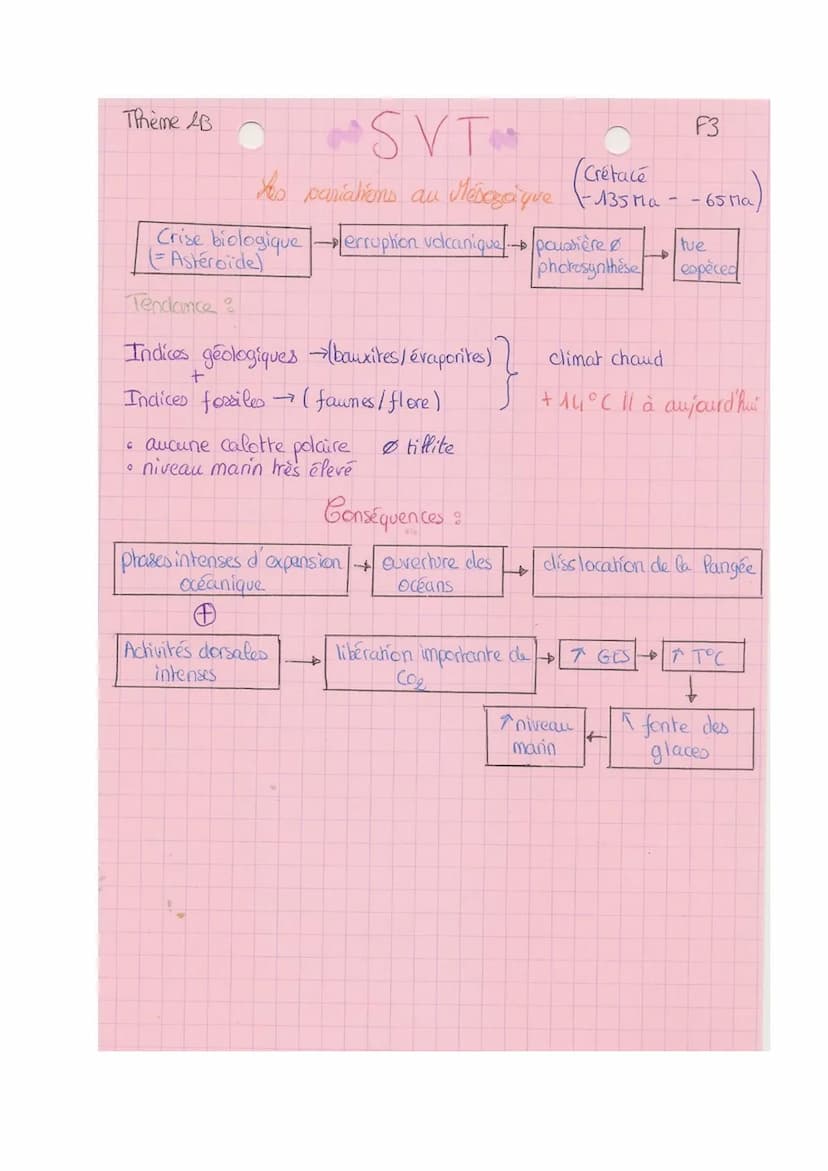 Thème 2B
SVT
F3
Les variations au Mésozoïque
(Crétacé
-135 Ma - -65 Ma)
Crise biologique
(= Astéroïde)
→ erruption volcanique →
poussière ø
photosynthèse
→
tue
espèces
Tendance :
Indices géologiques → (bauxites/évaporites)
+
Indices fossiles → (faunes/flore)
} climat chaud
+ 14°C // à aujourd'hui
• aucune calotte polaire ø tillite
• niveau marin très élevé
Conséquences :
phases intenses d'expansion
océanique
→
ouverture des
océans
→ disslocation de la Pangée
⊕
Activités dorsales
intenses
→
libération importante de
CO2
→ ↑ GES → ↑ T°C
↓
↑ fonte des
glaces
←
↑ niveau
marin